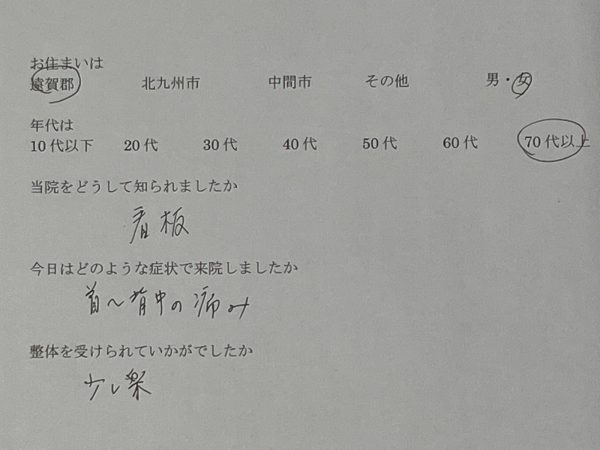 お住まいは
遠賀郡 北九州市 中間市 その他 男・女
年代は
10代以下 20代 30代 40代 50代 60代 70代以上
当院をどうして知られましたか
看板
今日はどのような症状で来院しましたか
首〜背中の痛み
整体を受けられていかがでしたか
少し楽